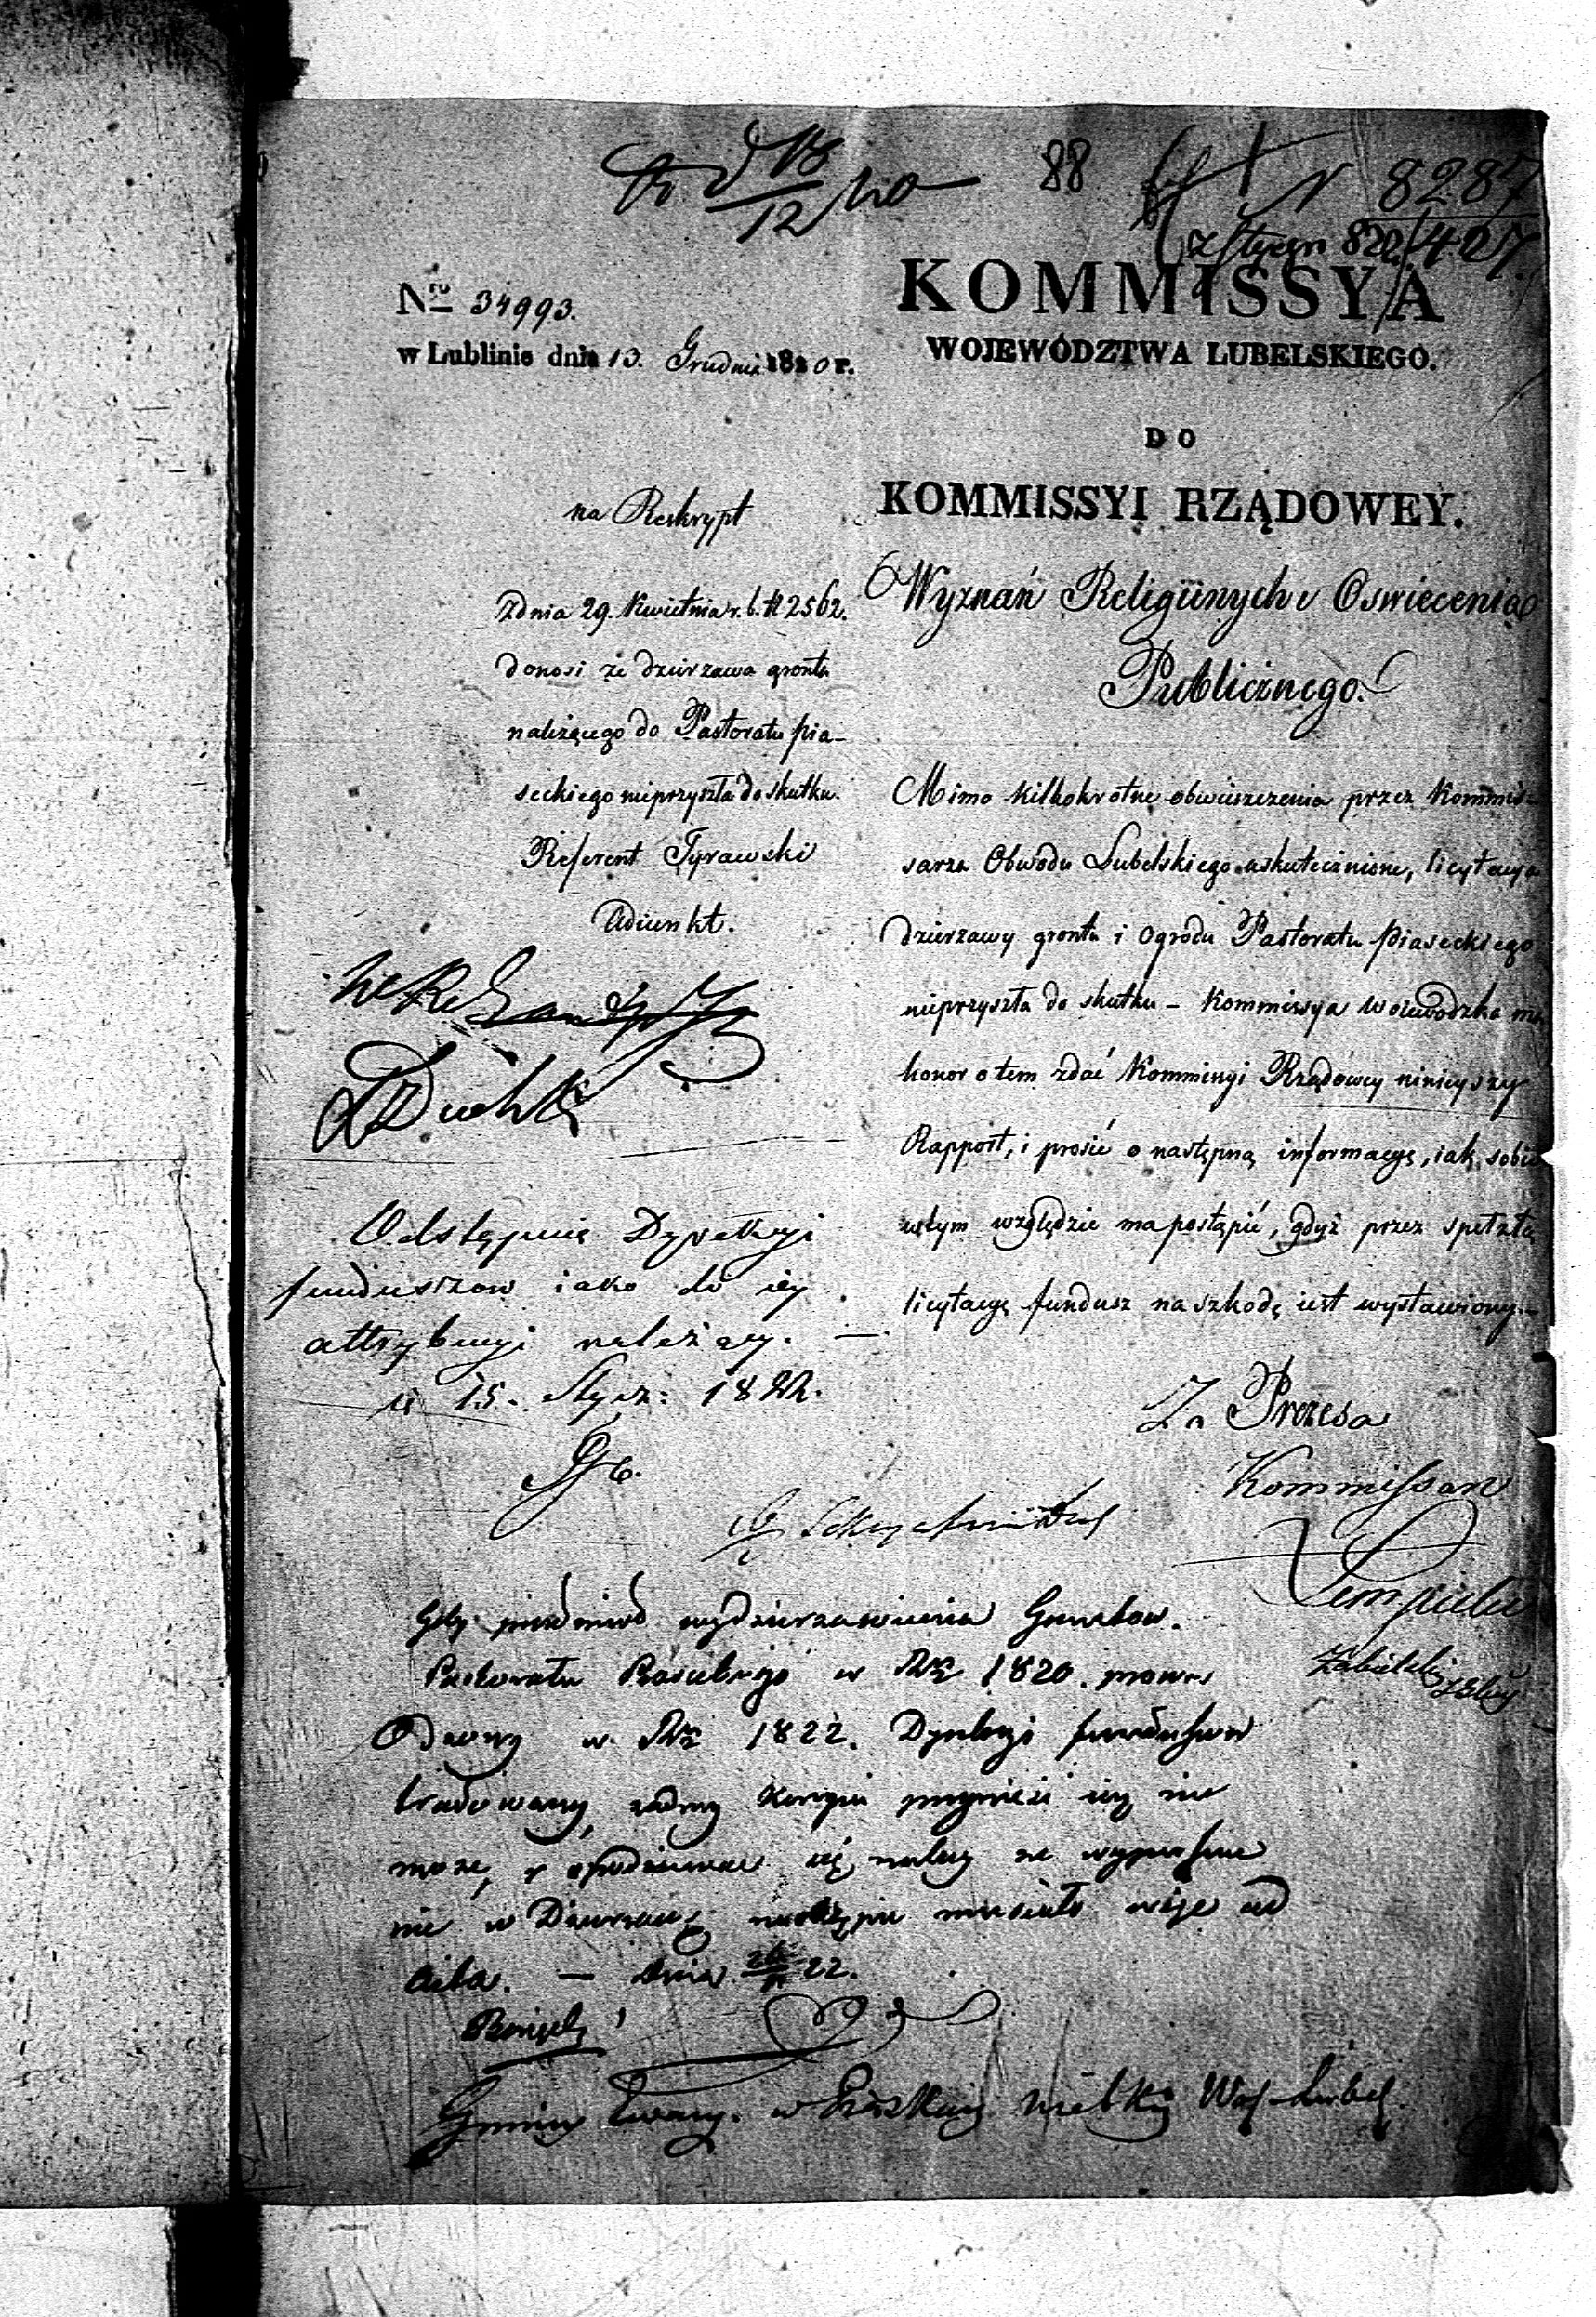 88
N 8287
z stycz 822. / 407.
Nro 34993.
w Lublinie dnia 13. Grudnia 1820 r.
KOMMISSYA
WOJEWÓDZTWA LUBELSKIEGO.
DO
KOMMISSYI RZĄDOWEY.
Wyznań Religiinych i Oswiecenia
Publicznego.
na Reskrypt
z dnia 29. Kwietnia r. b. N 2562.
donosi że dzierzawa grontu
należącego do Pastoratu pia-
seckiego nieprzyszła do skutku.
Referent Tyrawski
Adiunkt.
Mimo kilkokrotne obwieszczenia przez Kommis-
sarza Obwodu Lubelskiego uskutecznione, licytacya
dzierzawy grontu i Ogrodu Pastoratu Piaseckiego
nieprzyszła do skutku - Kommissya Woiewodzka ma
honor o tem zdać Kommissyi Rządowey ninieyszy
Rapport, i prosić o następną informacyę, iak sobie
wtym względzie ma postąpić, gdyż przez spełzłą
licytacyę fundusz na szkodę iest wystawiony.-
Odstępuie Dyrekcyi
funduszow iako do iey
attrybucyi należący. —
d. 15. Stycz: 1822.
Za Prezesa
Kommissarz
Gdy przedmiot wydzierzawienia Gruntow
Pastoratu Piaseckiego w Rk 1820. prawie
w Rk 1822. Dyrekcyi funduszow
tradowany, żadney korzyści przynieść iey nie
może, spodziewać się należy że wypuszcze
nie w Dzierzawę nastąpić musiało więc ad
acta. — dnia 22.
Gminy Ewang. w Piaskach wielkich Woj. Lubel.